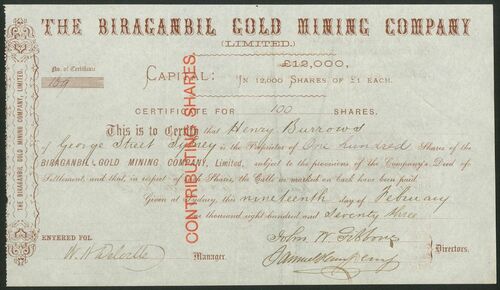 THE BIRAGANBIL GOLD MINING COMPANY
(LIMITED.)
£12,000,
CAPITAL: IN 12,000 SHARES OF £1 EACH.
No. of Certificate
169
CERTIFICATE FOR 100 SHARES.
This is to Certify that Henry Burrows
of George Street Sydney is the Proprietor of One hundred Shares of the
BIRAGANBIL GOLD MINING COMPANY, Limited, subject to the provisions of the Company's Deed of
Settlement, and that, in respect of such Shares, the Calls as marked on back have been paid
Given at Sydney, this nineteenth day of February
one thousand eight hundred and Seventy three
ENTERED FOL.
Manager.
John W.
Samuel
Directors.
CONTRIBUTING SHARES.
THE BIRAGANBIL GOLD MINING COMPANY, LIMITED.